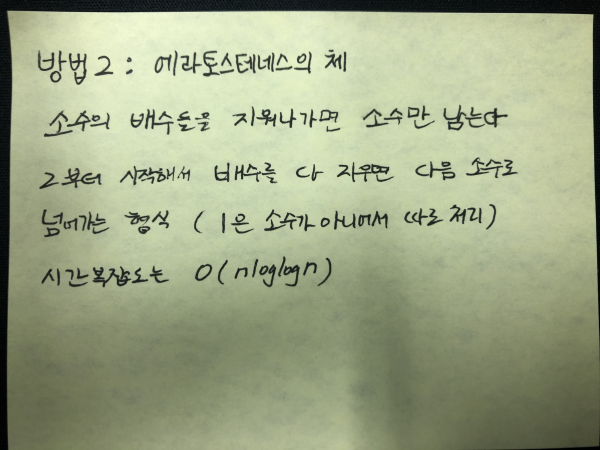 방법2: 에라토스테네스의 체
소수의 배수들을 지워나가면 소수만 남는다
2부터 시작해서 배수를 다 지우면 다음 소수로
넘어가는 형식 (1은 소수가 아니어서 따로 처리)
시간복잡도는 O(nloglogn)